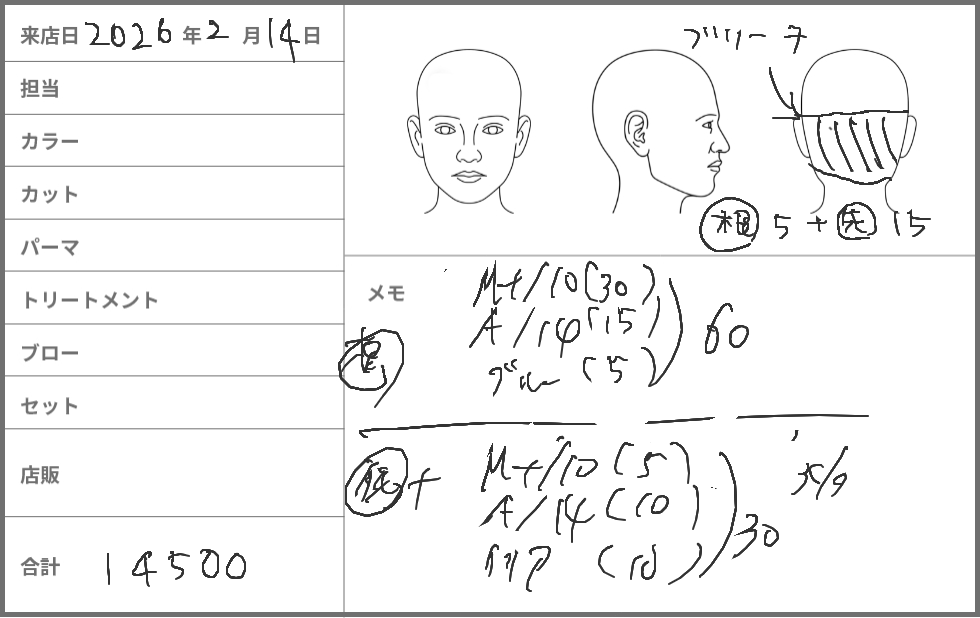 来店日 2026年2月14日
担当
カラー
カット
パーマ
トリートメント
ブロー
セット
店販
合計 14500
ブリーチ
根 5 + 先 15
メモ
M+/10(30)
A/14(15)
ブルー(5)
60
+ M+/10(5)
A/14(10)
クリア(10)
30